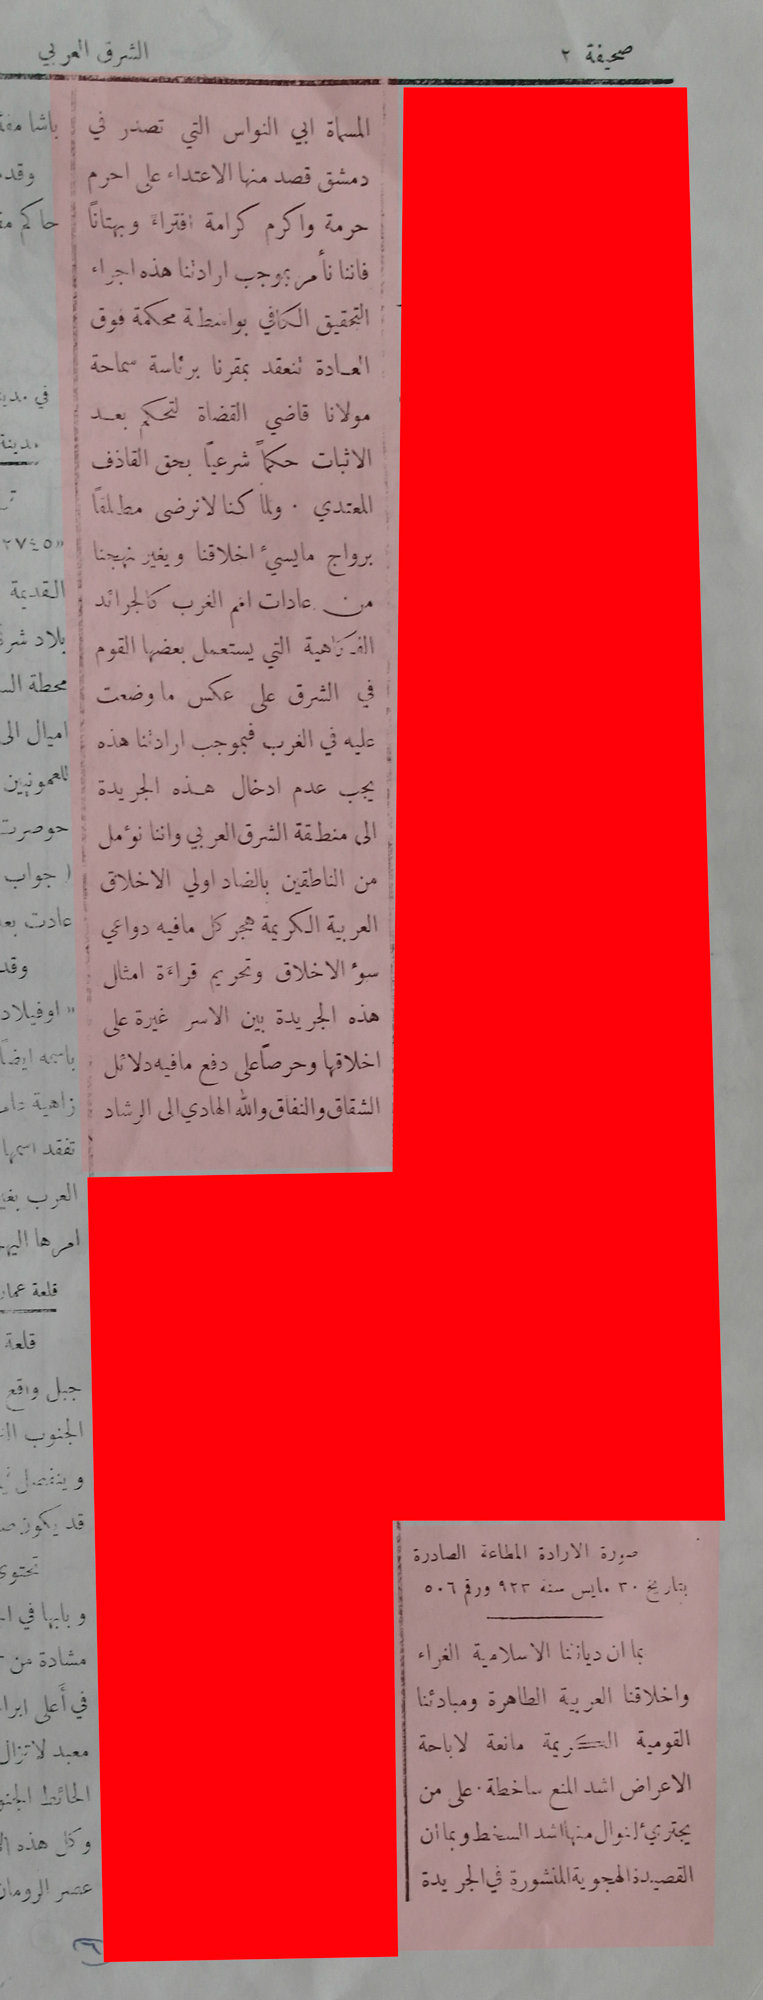 صحيفة ٢
الشرق العربي
صورة الارادة المطاعة الصادرة
بتاريخ ٣٠ مايس سنة ٩٢٣ ورقم ٥٠٦
بما ان ديانتنا الاسلامية الغراء
واخلاقنا العربية الطاهرة ومبادئنا
القومية الكريمة مانعة لاباحة
الاعراض اشد المنع ساخطة على من
يجتريء لنوال منها اشد السخط وبما أن
القصيدة الهجوية المنشورة في الجريدة
المسماة ابي النواس التي تصدر في
دمشق قصد منها الاعتداء على احرم
حرمة واكرم كرامة افتراءً وبهتانًا
فاننا نأمر بموجب ارادتنا هذه اجراء
التحقيق الكافي بواسطة محكمة فوق
العادة تنعقد بمقرنا برئاسة سماحة
مولانا قاضي القضاة لتحكم بعد
الاثبات حكماً شرعيّا بحق القاذف
المعتدي . ولما كنا لانرضى مطلقًا
برواج مايسيء اخلاقنا ويغير نهجنا
من عادات امم الغرب كالجرائد
الفكاهية التي يستعمل بعضها القوم
في الشرق على عكس ما وضعت
عليه في الغرب فبموجب ارادتنا هذه
يجب عدم ادخال هذه الجريدة
الى منطقة الشرق العربي واننا نوٴمل
من الناطقين بالضاد اولي الاخلاق
العربية الكريمة هجر كل مافيه دواعي
سوٴ الاخلاق وتحريم قراءة امثال
هذه الجريدة بين الاسر غيرة على
اخلاقها وحرصًا على دفع مافيه دلائل
الشقاق والنفاق والله الهادي الى الرشاد
باشا
وقد
حاكم
في
مدينة
القديمة
بلاد
محطة
اميال الى
للعمونيين
حوصرت
( جواب
عادت
وقد
باسمه ايضاً
زاهية
تفقد اسمها
العرب
امرها
قلعة
قلعة
جبل واقع
الجنوب
وينفصل
قد يكون
تحتوي
وبابها في
مشادة من
في أعلى
معبد لا تزال
الحائط
وكل هذه
عصر الرومان